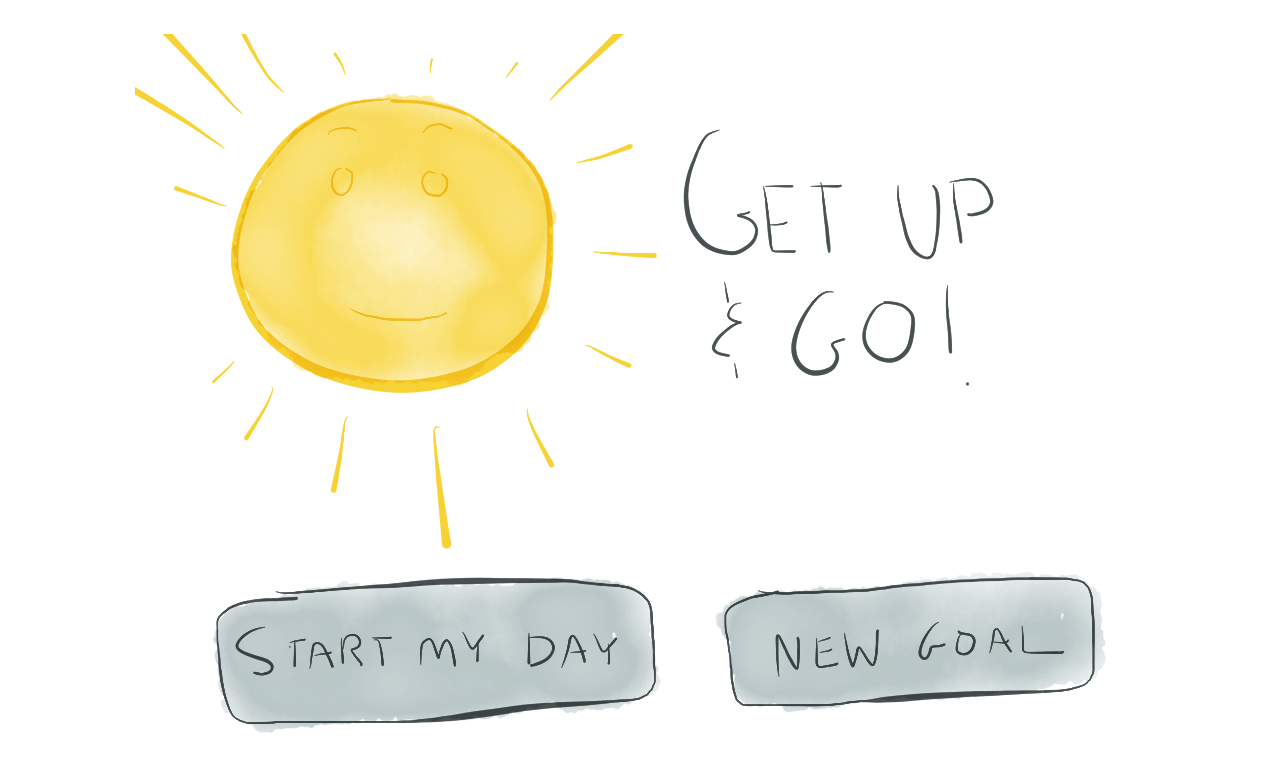 GET UP
& GO!
START MY DAY
NEW GOAL